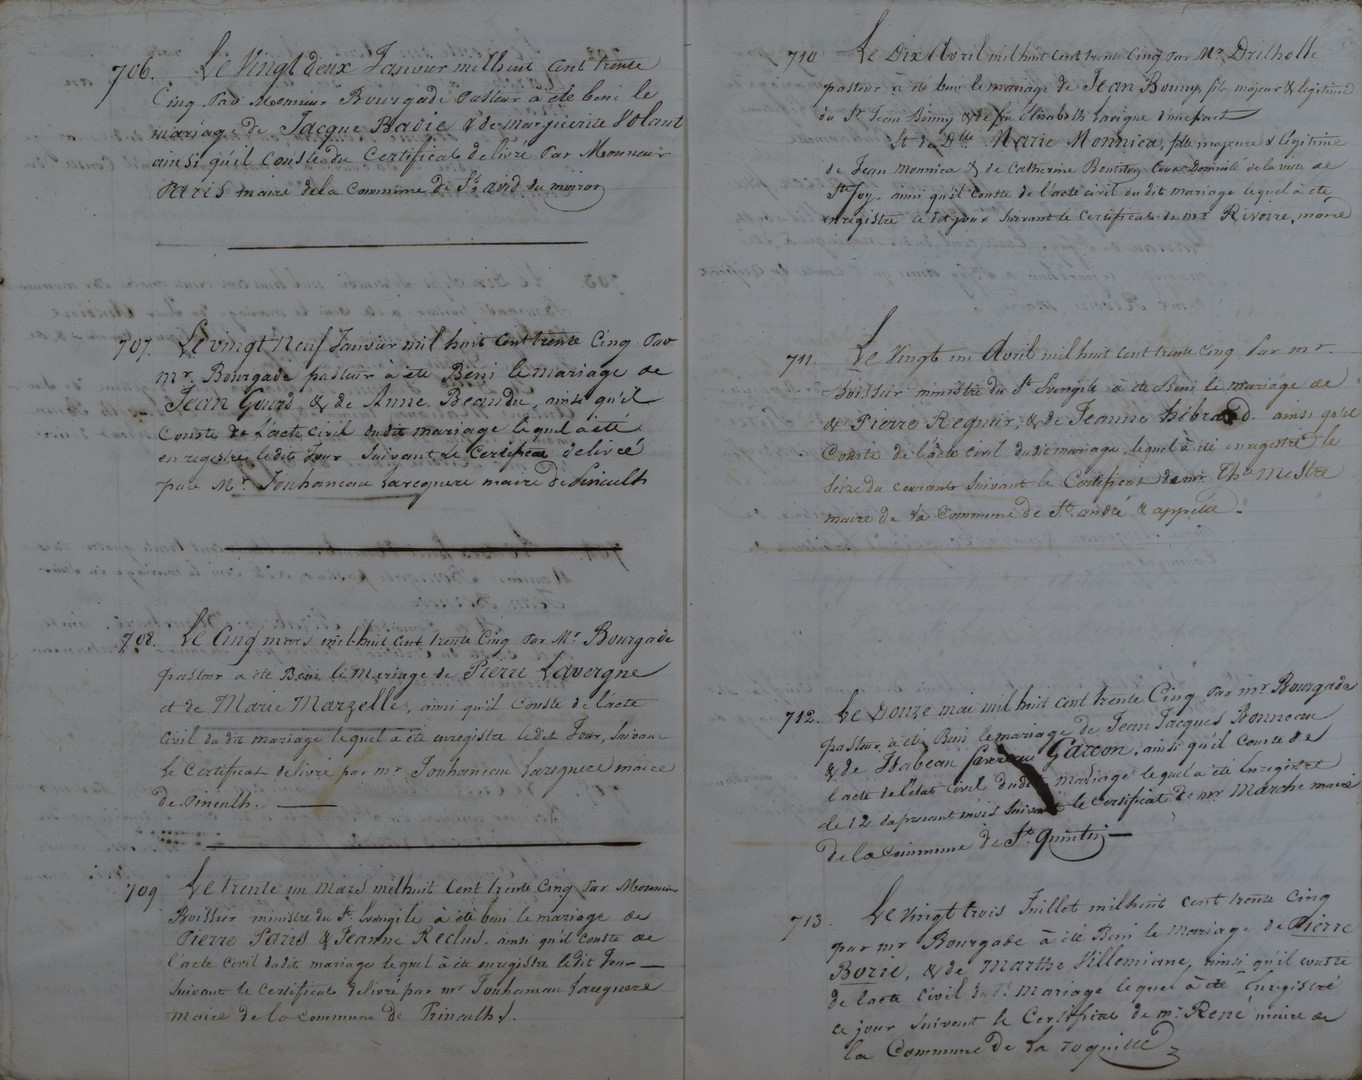 706. Le Vingt deux Janvier mil huit cent trente
Cinq Par Monsieur Bourgade Pasteur à été beni le
mariage de Jacque Badie & de Marguerite Volant
ainsi qu'il conste du Certificat délivré Par Monsieur
Paris maire de la Commune de St. avid du moiron
707. Le vingt Neuf Janvier mil huit cent trente Cinq Par
mr. Bourgade pasteur à été Beni le mariage de
Jean Gourd & de Anne Beandu, ainsi qu'il
Conste de L'acte Civil du dit mariage lequel à été
enregistre ledit Jour Suivant Le Certificat délivré
par Mr. Jouhaneau Laregnere maire de Pineulh
708. Le Cinq mars mil huit cent trente Cinq Par Mr. Bourgade
pasteur a été Beni le Mariage de Pierre Lavergne
et de Marie Marzelle, ainsi qu'il Conste de l'acte
Civil du dit mariage lequel à été enregistre ledit Jour, Suivant
Le Certificat délivré par mr Jouhaneau Laregnere maire
de Pineulh.
709 Le trente un Mars mil huit Cent trente Cinq Par Monsieur
Boissier ministre du St. Evengile à été beni le mariage de
Pierre Paris & Jeanne Reclus, ainsi qu'il conste de
l'acte Civil du dit mariage lequel à été enregistre ledit Jour
Suivant le Certificat délivré par mr Jouhaneau Laregnere
maire de la Commune de Pineulh.
710 Le Dix Avril mil huit Cent trente Cinq Par Mr. Drilholle
pasteur à été beni le mariage de Jean Bonny fils majeur & légitime
du Sr. Jean Bonny & de feu Elisabeth Lavigne d'une part
Et de Dlle Marie Monnica, fille majeure & légitime
de Jean Monnica & de Catherine tous Domicilié de la ville de
Ste Foy, ainsi qu'il conste de l'acte civil du dit mariage lequel à été
enregistre ce dit jour Suivant le Certificat de mr Rivoire, maire
711. Le Vingt un Avril mil huit Cent trente Cinq Par mr
Boissier ministre du St. Evengile à été Beni le mariage de
de Pierre Regnier, & de Jeanne hébrard ainsi qu'il
Conste de l'acte civil du dit mariage, lequel à été enregistré le
Seize du courant Suivant le Certificat de mr. Ths Mestre
maire de la Commune de St. andré & appelle.
712. Le Douze mai mil huit cent trente Cinq Par mr Bourgade
pasteur à été Beni le mariage de Jean Jacques Bonneau
& de Isabeau Garcon, ainsi qu'il Conste de
l'acte de l'état Civil dudit mariage lequel à été enregistre
le 12 du présent mois Suivant le Certificat de mr Marche maire
de la Commune de St. Quintin
713. Le Vingt trois Juillet mil huit cent trente Cinq
par mr Bourgade à été Beni le Mariage de Pierre
Borie, & de Marthe Villemiane, ainsi qu'il conste
de l'acte civil du dt. Mariage lequel à été Enregistré
ce jour Suivant le Certificat de mr. René maire de
la Commune de La roquille